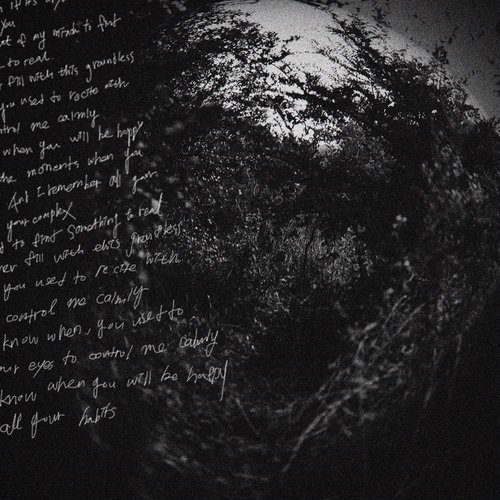 you
of my mind to find
to read
fill with this groundless
you used to recite with
control me calmly
when you will be happy
the moments when you
And I remember of your
your complex
to find something to read
fill with this groundless
you used to recite with
control me calmly
know when, you used to
your eyes to control me calmly
know when you will be happy
all your habits